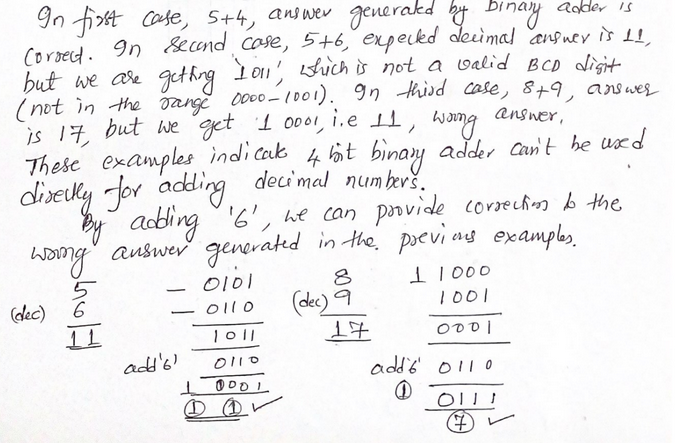 In first case, 5+4, answer generated by binary adder is
correct. In second case, 5+6, expected decimal answer is 11,
but we are getting '1011', which is not a valid BCD digit
(not in the range 0000-1001). In third case, 8+9, answer
is 17, but we get 1 0001, i.e 11, wrong answer.
These examples indicate 4 bit binary adder can't be used
directly for adding decimal numbers.
By adding '6', we can provide correction to the
wrong answer generated in the previous examples.
5 — 0101
(dec) 6 — 0110
11 1011
add '6' 0110
1 0001
1 1 ✓
8 1 1000
(dec) 9 1001
17 0001
add '6' 0110
1 0111
7 ✓